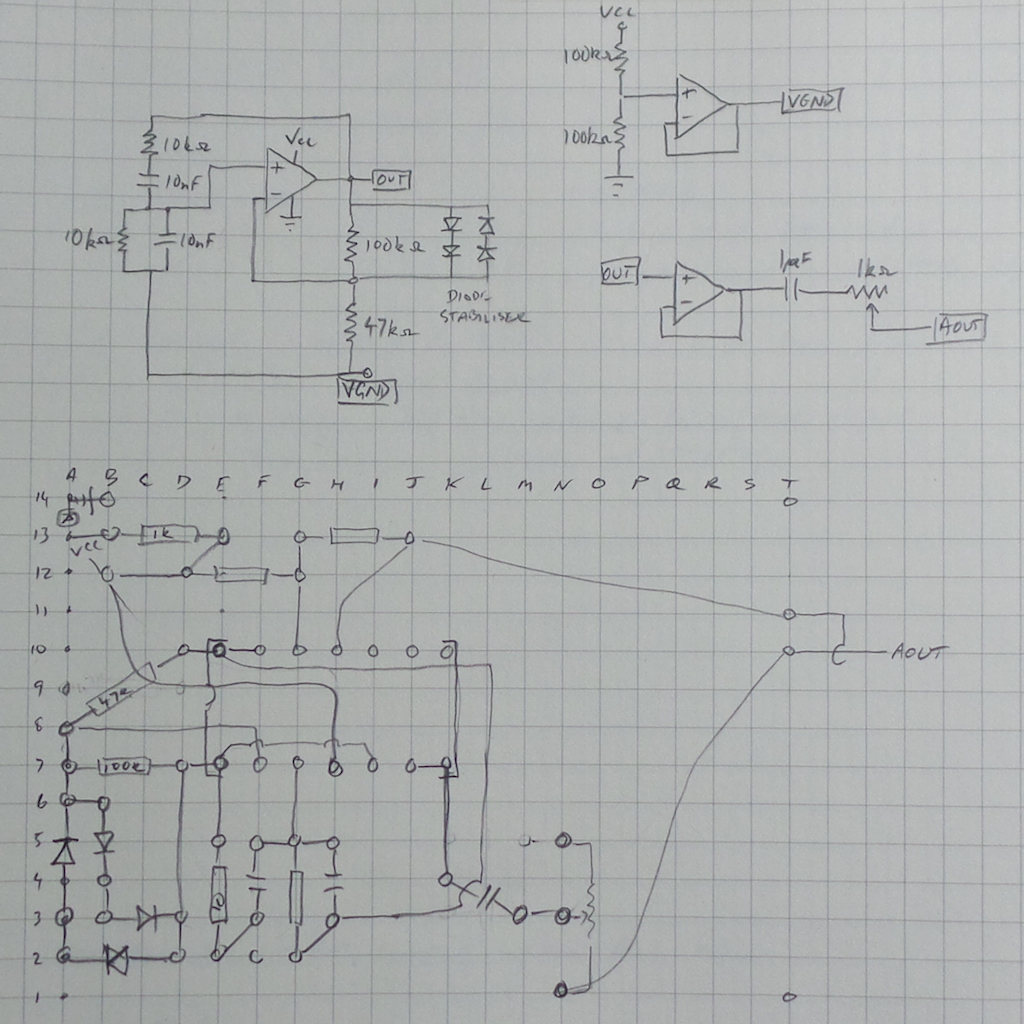 VCC
100kΩ
VGND
100kΩ
10kΩ
Vcc
10nF
OUT
10kΩ
10nF
100kΩ
DIODE
STABILISER
47kΩ
VGND
OUT
1µF
1kΩ
AOUT
A B C D E F G H I J K L M N O P Q R S T
14
13 1k
VCC
12
11
10
AOUT
9 47k
8
7 100k
6
5
4
3
2
1